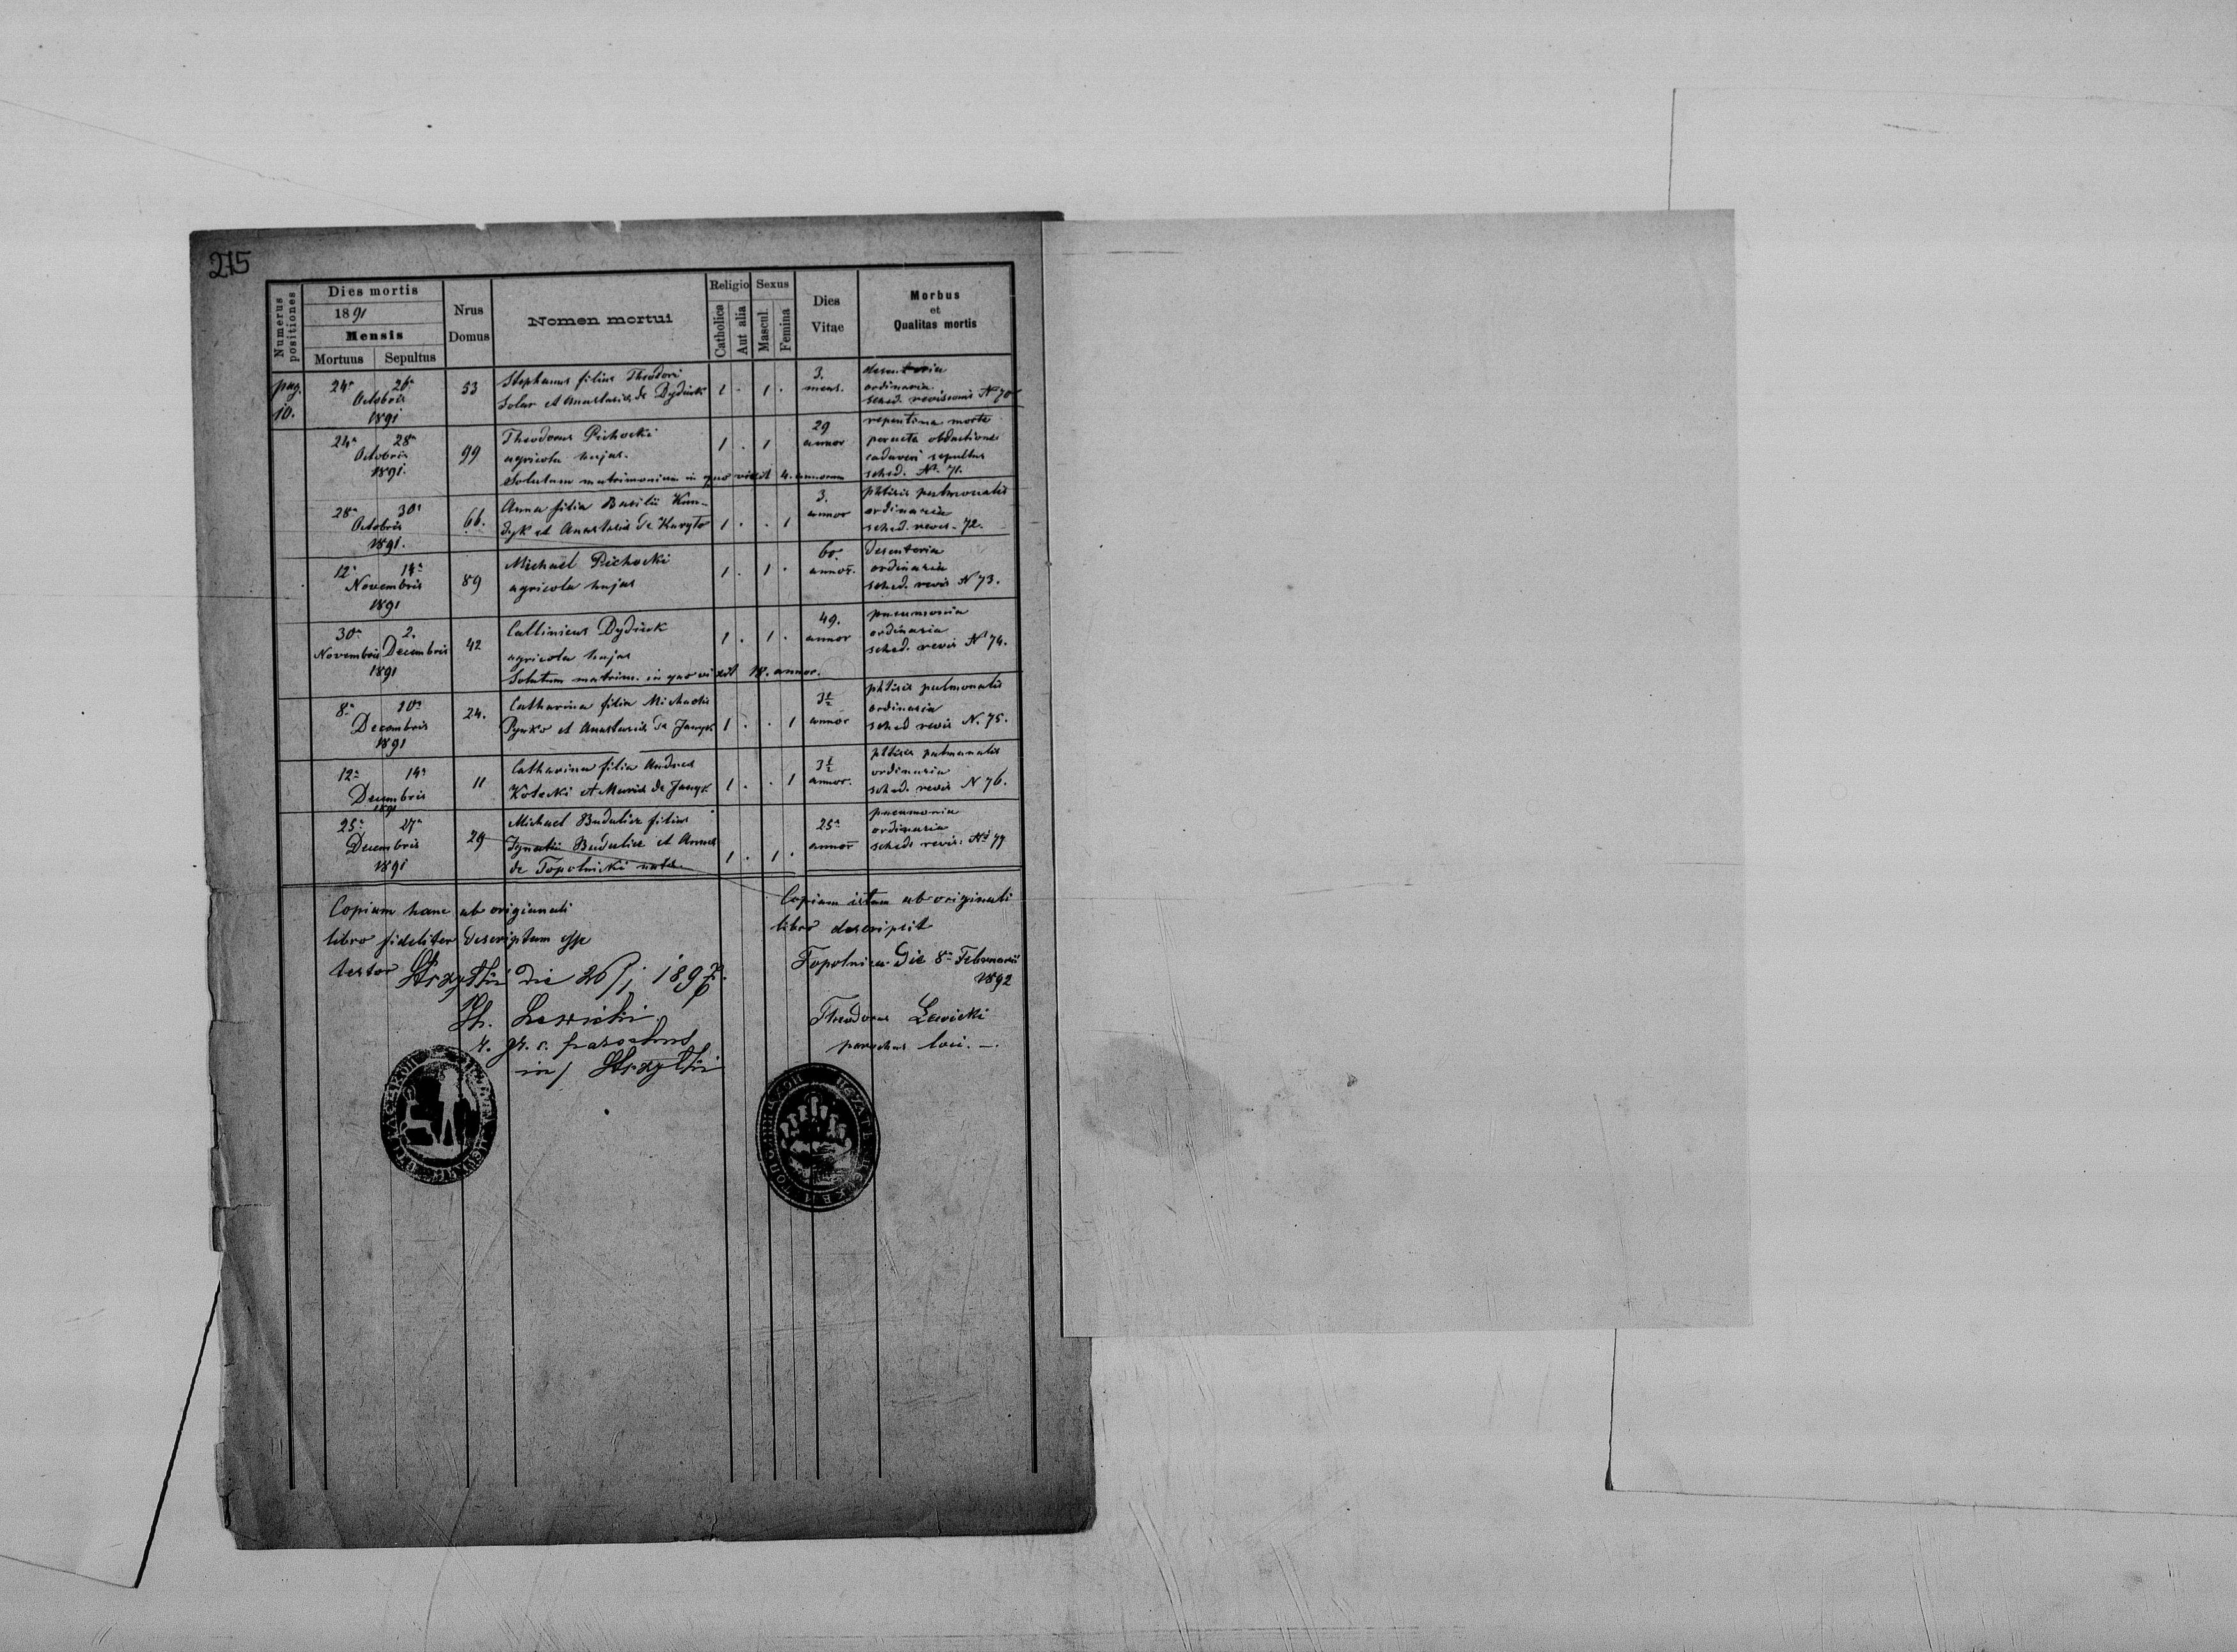 275
Numerus positiones
Dies mortis
1891
Mensis
Mortuus Sepultus
Nrus Domus
Nomen mortui
Religio Sexus
Catholica Aut alia Mascul. Femina
Dies Vitae
Morbus et Qualitas mortis
pag. 10.
24a 26a
Octobris
1891
53
Stephanus filius Theodori
Solar et Anastasia de Dydiuk
1 . 1 .
3.
mens.
desenteria
ordinaria
sched. revisionis N 70
24a 28a
Octobris
1891.
99
Theodorus Pichocki
agricola hujas.
Solutum matrimonium in quo vixit 4. annorum
1 . 1
29
annor
repentina morte
peracta obductione
cadaveri sepultus
sched. No. 71.
28a 30a
Octobris
1891.
66.
Anna filia Basilii Kun-
dyk et Anastasia de Kuryło
1 . . 1
3.
annor
phtisis pulmonalis
ordinaria
sched. revis. 72.
12a 14a
Novembris
1891
89
Michael Pichocki
agricola hujas
1 . 1 .
60.
annor.
desenteria
ordinaria
sched. revis N 73.
30a 2.
Novembris Decembris
1891
42
Callinicus Dydiuk
agricola hujas
Solutum matrim. in quo vixit 18. annor.
1 . 1 .
49.
annor
pneumonia
ordinaria
sched. revis N 74.
8a 10a
Decembris
1891
24.
Catharina filia Michaelis
Pynko et Anastasia de Janyk
1 . . 1
3½
annor
phtisis pulmonalis
ordinaria
sched revis N. 75.
12a 14a
Decembris
1891
11
Catharina filia Andreae
Kotecki et Maria de Janyk
1 . . 1
3½
annor.
phtisis pulmonalis
ordinaria
sched. revis N 76.
25a 27a
Decembris
1891
29
Michael Budulicz filius
Ignatii Budulicz et Anna
de Topolnicki nata
1 . 1 .
25a
annor
pneumonia
ordinaria
sched. revis: No 77
Copiam hanc ab origianali
libro fideliter descriptam esse
testor Strzyłki die 26/1 1897.
Th. Lewicki
r. gr. c. parochus
in Strzyłki
Copiam istam ab originali
libro descripsit
Topolnica die 8a Februarii
1892
Theodorus Lewicki
parochus loci. —.